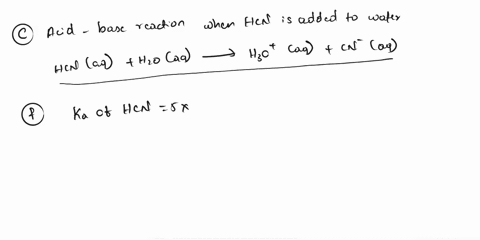 (c) Acid - base reaction when HCN is added to water
HCN (aq) + H2O (aq) ⟶ H3O+ (aq) + CN- (aq)
(f) Ka of HCN = 5x